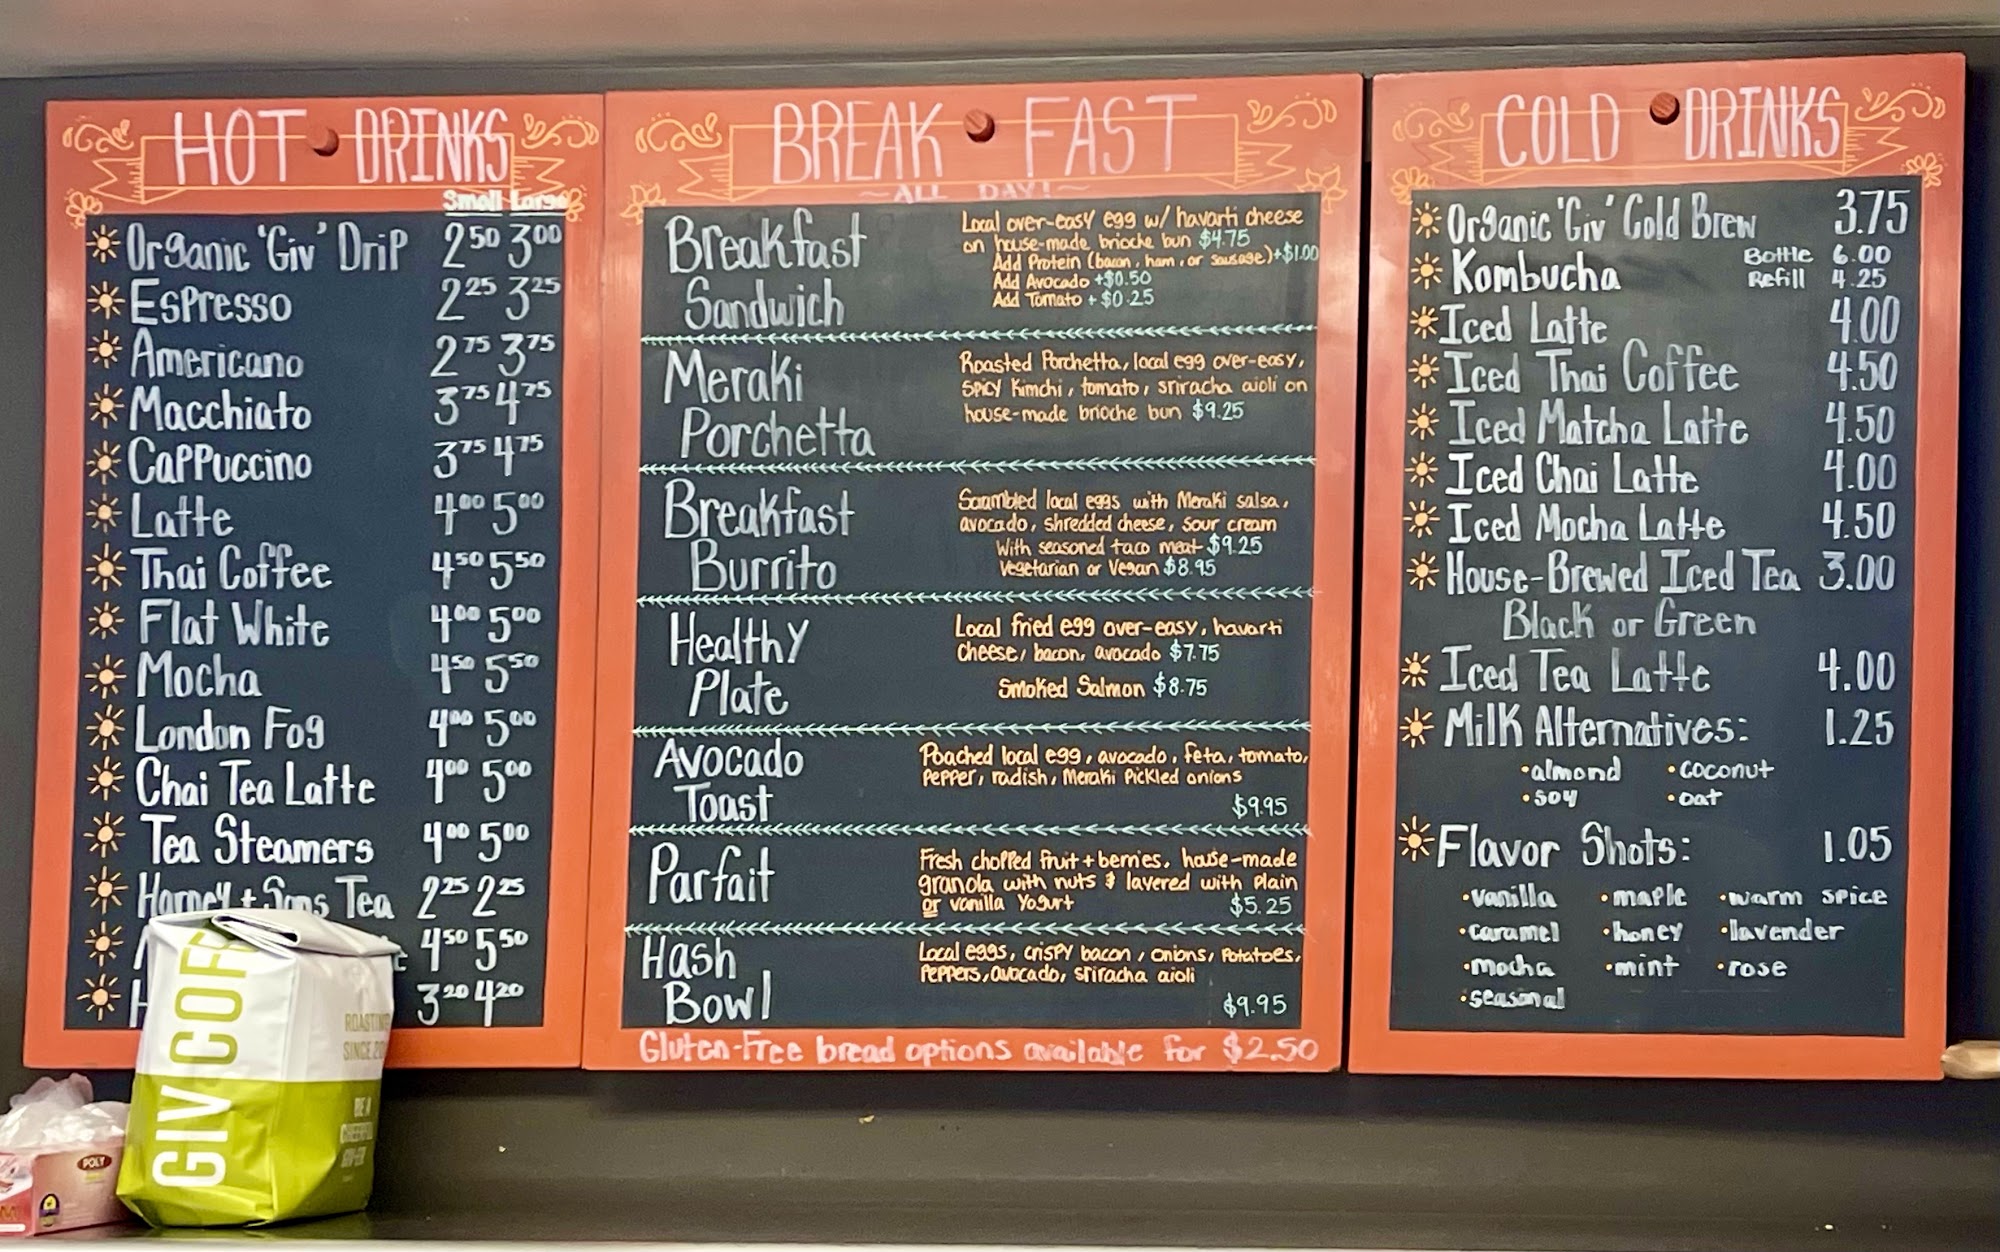 HOT DRINKS
Small Large
Organic 'Giv' Drip 2.50 3.00
Espresso 2.25 3.25
Americano 2.75 3.75
Macchiato 3.75 4.75
Cappuccino 3.75 4.75
Latte 4.00 5.00
Thai Coffee 4.50 5.50
Flat White 4.00 5.00
Mocha 4.50 5.50
London Fog 4.00 5.00
Chai Tea Latte 4.00 5.00
Tea Steamers 4.00 5.00
Harney + Sons Tea 2.25 2.25
4.50 5.50
3.20 4.20
BREAK FAST
~ALL DAY!~
Breakfast Sandwich
Local over-easy egg w/ havarti cheese
on house-made brioche bun $4.75
Add Protein (bacon, ham, or sausage)+$1.00
Add Avocado +$0.50
Add Tomato + $0.25
Meraki Porchetta
Roasted Porchetta, local egg over-easy,
spicy kimchi, tomato, sriracha aioli on
house-made brioche bun $9.25
Breakfast Burrito
Scrambled local eggs with Meraki salsa,
avocado, shredded cheese, sour cream
With seasoned taco meat $9.25
Vegetarian or Vegan $8.95
Healthy Plate
Local fried egg over-easy, havarti
cheese, bacon, avocado $7.75
Smoked Salmon $8.75
Avocado Toast
Poached local egg, avocado, feta, tomato,
pepper, radish, Meraki Pickled onions
$9.95
Parfait
Fresh chopped fruit + berries, house-made
granola with nuts & layered with plain
or vanilla yogurt $5.25
Hash Bowl
Local eggs, crispy bacon, onions, potatoes,
peppers, avocado, sriracha aioli
$9.95
Gluten-Free bread options available for $2.50
COLD DRINKS
Organic 'Giv' Cold Brew 3.75
Kombucha Bottle 6.00
Refill 4.25
Iced Latte 4.00
Iced Thai Coffee 4.50
Iced Matcha Latte 4.50
Iced Chai Latte 4.00
Iced Mocha Latte 4.50
House-Brewed Iced Tea 3.00
Black or Green
Iced Tea Latte 4.00
Milk Alternatives: 1.25
•almond •coconut
•soy •oat
Flavor Shots: 1.05
•vanilla •maple •warm spice
•caramel •honey •lavender
•mocha •mint •rose
•seasonal
GIV COF
ROASTING
SINCE 20
BE A
POLY